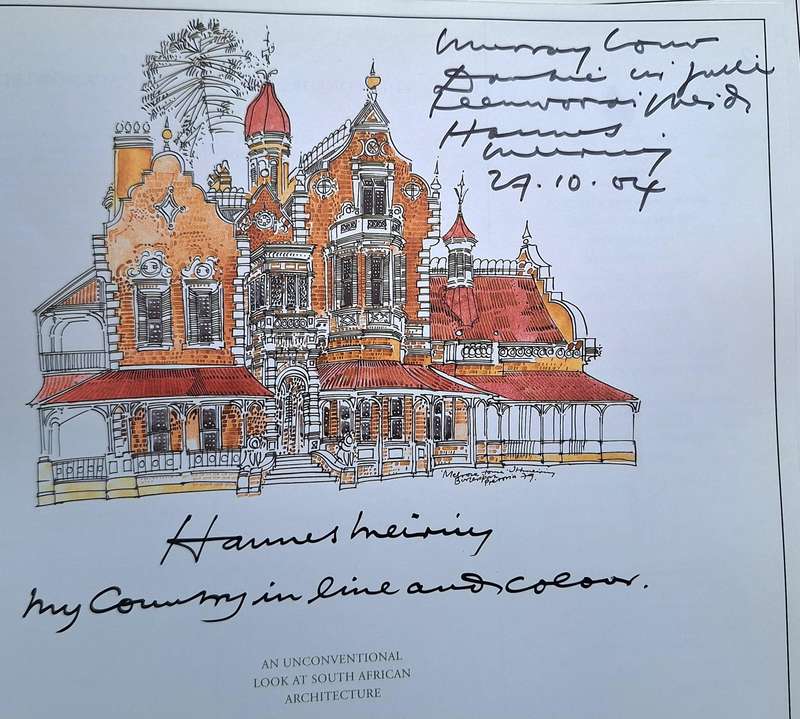 Murray Louw
Dankie vir julle
teenwoordigheid
Hannes
Meiring
27.10.04
Melrose House
Pretoria 79.
Hannes Meiring
My Country in line and colour.
AN UNCONVENTIONAL
LOOK AT SOUTH AFRICAN
ARCHITECTURE